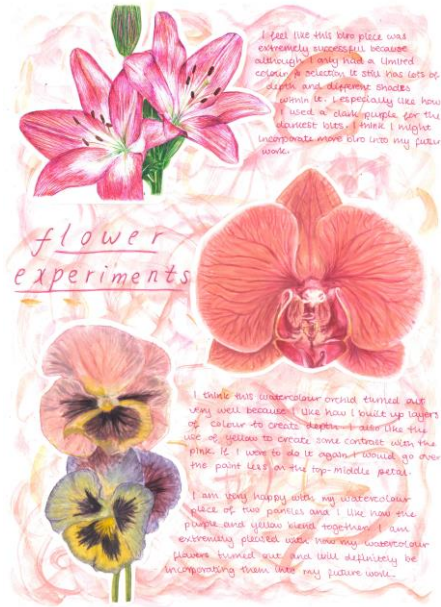 I feel like this biro piece was
extremely successful because
although I only had a limited
colour selection it still has lots of
depth and different shades
within it. I especially like how
I used a dark purple for the
darkest bits. I think I might
incorporate more biro into my future
work.
flower
experiments
I think this watercolour orchid turned out
very well because I like how I built up layers
of colour to create depth. I also like the
use of yellow to create some contrast with the
pink. If I were to do it again I would go over
the paint less on the top-middle petal.
I am very happy with my watercolour
piece of two pansies and I like how the
purple and yellow blend together. I am
extremely pleased with how my watercolour
flowers turned out and will definitely be
incorporating them into my future work.